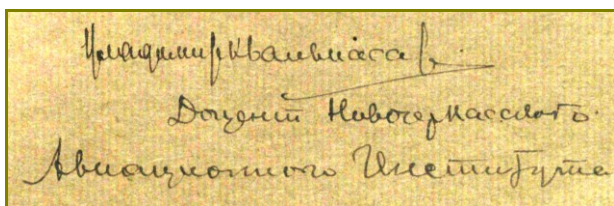 Владимир Квальвасав
Доцент Новочеркасского
Авиационного Института